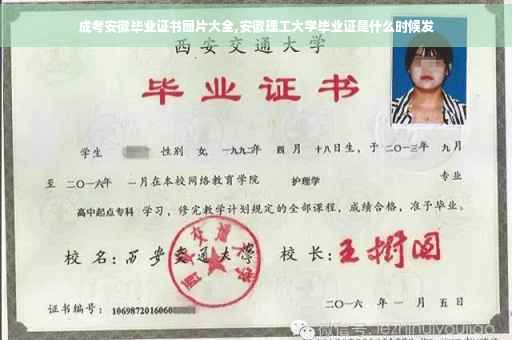 成考安徽毕业证书图片大全,安徽理工大学毕业证是什么时候发
西安交通大学
毕业证书
学生 性别 女, 一九九二年 四月 十八日生,于 二〇一三年 九月
至 二〇一六年 一月在本校网络教育学院 护理学 专业
高中起点专科 学习,修完教学计划规定的全部课程,成绩合格,准予毕业。
校名:西安交通大学 校长:王树国
西安交通大学
证书编号:1069872016060
二〇一六年 一月 五日
微信号:jezhihuiyoujiao